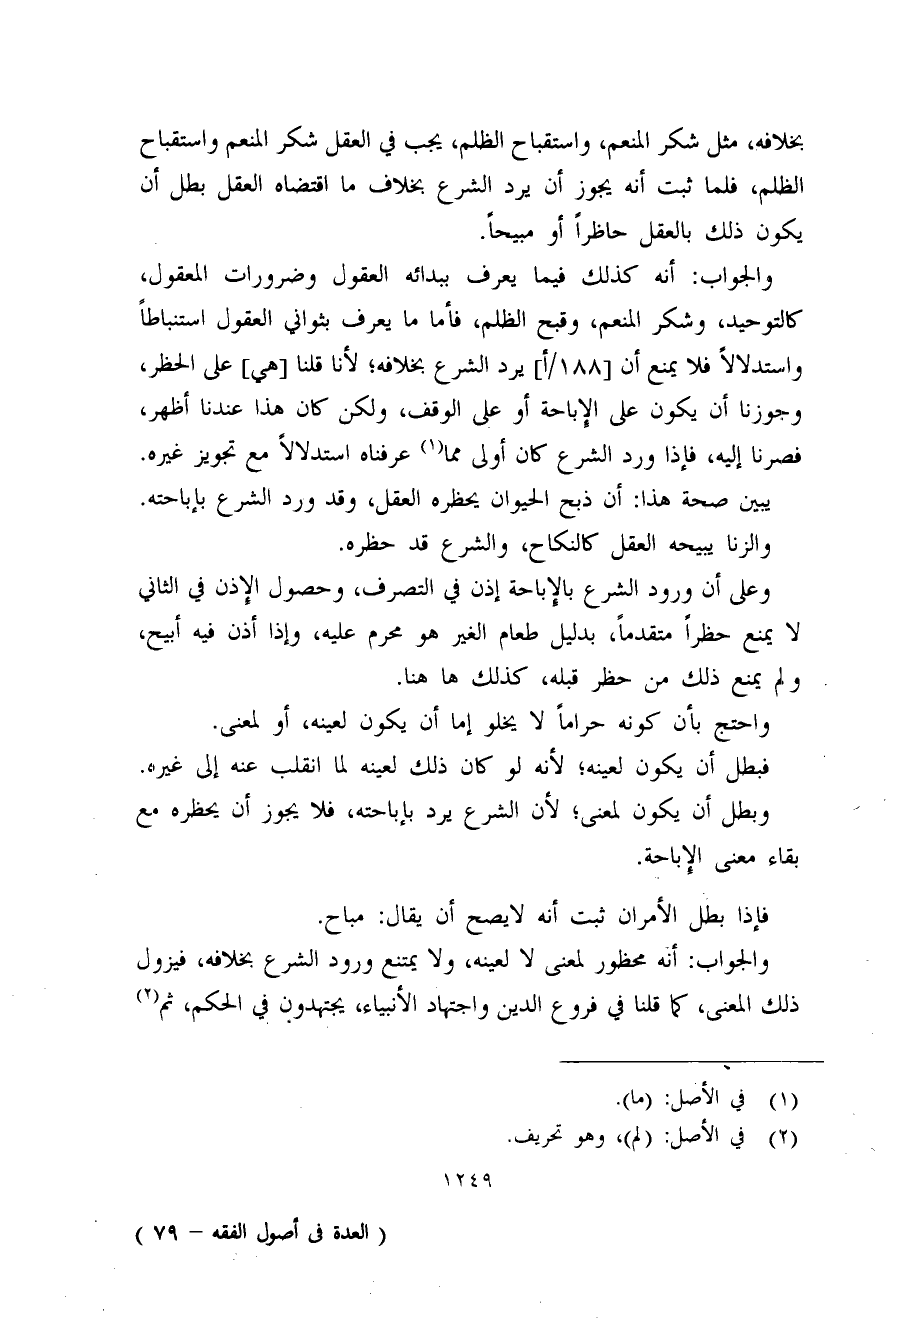 بخلافه، مثل شكر المنعم، واستقباح الظلم، يجب في العقل شكر المنعم واستقباح
الظلم، فلما ثبت أنه يجوز أن يرد الشرع بخلاف ما اقتضاه العقل بطل أن
يكون ذلك بالعقل حاظراً أو مبيحاً.
والجواب: أنه كذلك فيما يعرف ببدائه العقول وضرورات المعقول،
كالتوحيد، وشكر المنعم، وقبح الظلم، فأما ما يعرف بثواني العقول استنباطاً
واستدلالاً فلا يمنع أن [١٨٨/أ] يرد الشرع بخلافه؛ لأنا قلنا [هي] على الحظر،
وجوزنا أن يكون على الإباحة أو على الوقف، ولكن كان هذا عندنا أظهر،
فصرنا إليه، فإذا ورد الشرع كان أولى مما(١) عرفناه استدلالاً مع تجويز غيره.
يبين صحة هذا: أن ذبح الحيوان يحظره العقل، وقد ورد الشرع بإباحته.
والزنا يبيحه العقل كالنكاح، والشرع قد حظره.
وعلى أن ورود الشرع بالإباحة إذن في التصرف، وحصول الإذن في الثاني
لا يمنع حظراً متقدماً، بدليل طعام الغير هو محرم عليه، وإذا أذن فيه أبيح،
ولم يمنع ذلك من حظر قبله، كذلك ها هنا.
واحتج بأن كونه حراماً لا يخلو إما أن يكون لعينه، أو لمعنى.
فبطل أن يكون لعينه؛ لأنه لو كان ذلك لعينه لما انقلب عنه إلى غيره.
وبطل أن يكون لمعنى؛ لأن الشرع يرد بإباحته، فلا يجوز أن يحظره مع
بقاء معنى الإباحة.
فإذا بطل الأمران ثبت أنه لايصح أن يقال: مباح.
والجواب: أنه محظور لمعنى لا لعينه، ولا يمتنع ورود الشرع بخلافه، فيزول
ذلك المعنى، كما قلنا في فروع الدين واجتهاد الأنبياء، يجتهدون في الحكم، ثم(٢)
(١) في الأصل: (ما).
(٢) في الأصل: (لم)، وهو تحريف.
١٢٤٩
( العدة فى أصول الفقه – ٧٩ )